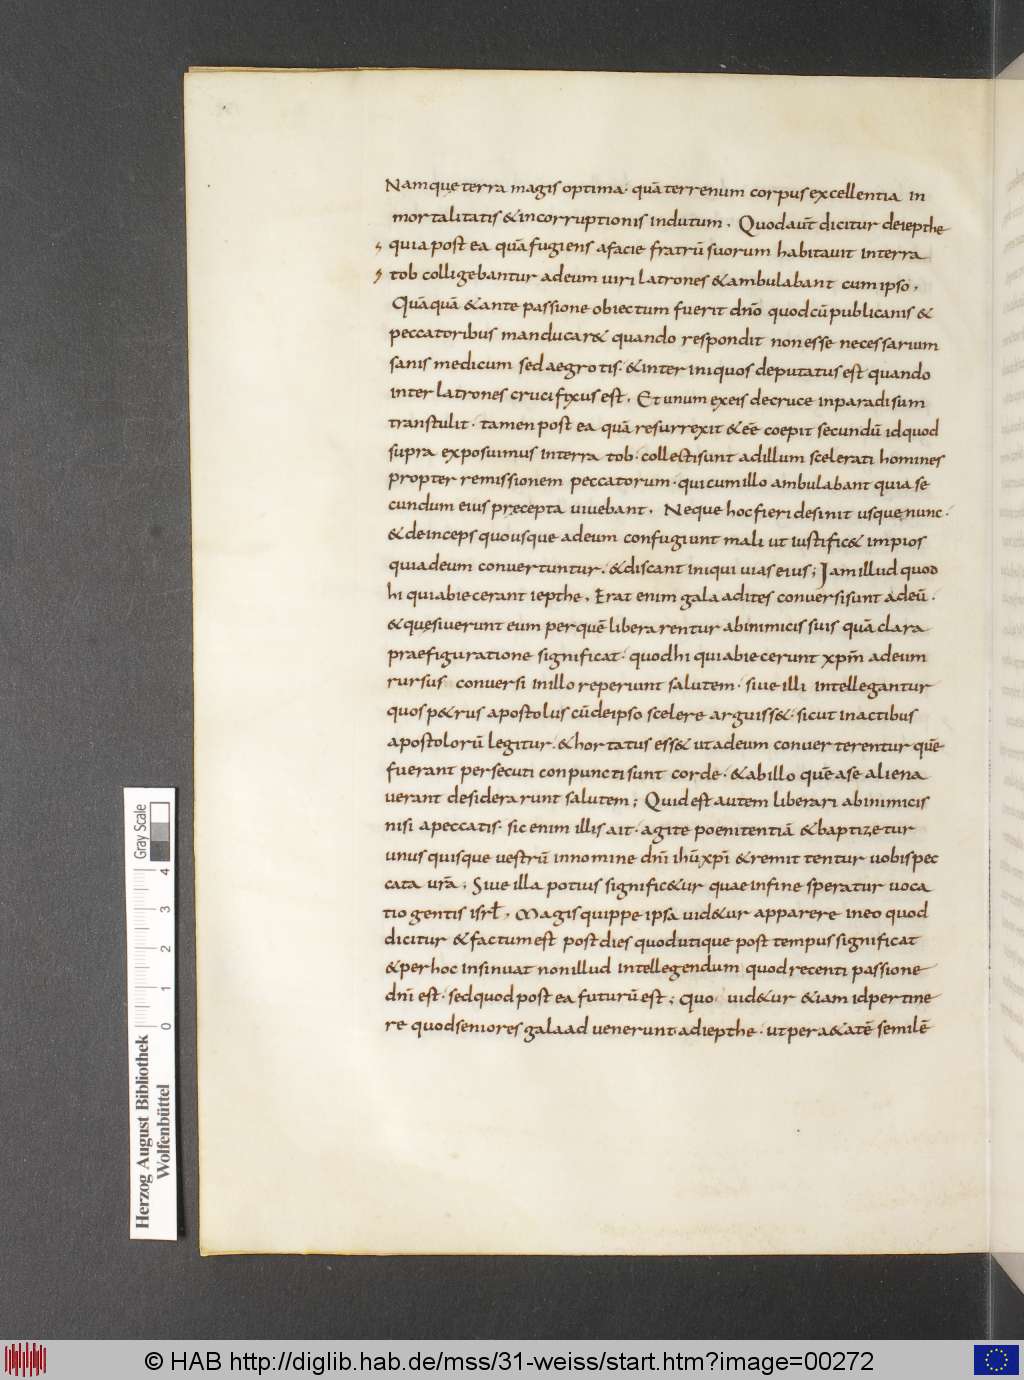 Namque terra magis optima· quā terrenum corpus excellentia in
mortalitatis & incorruptionis indutum. Quod aut̄ dicitur de iepthe
quia post ea quā fugiens a facie fratrū suorum habitauit in terra
tob colligebantur ad eum uiri latrones & ambulabant cum ipso,
Quā quā & ante passione obiectum fuerit dn̄o quod cū publicanis &
peccatoribus manducar& quando respondit non esse necessarium
sanis medicum sed aegrotis· & inter iniquos deputatus est quando
inter latrones crucifixus est. Et unum ex eis de cruce in paradisum
transtulit· tamen post ea quā resurrexit & eē coepit secundū id quod
supra exposuimus in terra tob· collecti sunt ad illum scelerati homines
propter remissionem peccatorum· qui cum illo ambulabant quia se
cundum eius pręcepta uiuebant. Neque hoc fieri desinit usque nunc·
& deinceps quo usque ad eum confugiunt mali ut iustific& impios
qui ad eum conuertuntur. & discant iniqui uias eius; Jam illud quod
hi qui abiecerant iepthe. Erat enim galaadites conuersi sunt ad eū.
& quęsiuerunt eum per quē liberarentur ab inimicis suis quā clara
praefiguratione significat· quod hi qui abiecerunt xpm̄ ad eum
rursus conuersi in illo reperiunt salutem· siue illi intellegantur
quos p&rus apostolus cū de ipso scelere arguiss&· sicut in actibus
apostolorū legitur. & hortatus ess& ut ad eum conuerterentur quē
fuerant persecuti conpuncti sunt corde· & ab illo quē a se aliena
uerant desiderarunt salutem; Quid est autem liberari ab inimicis
nisi a peccatis· sic enim illis ait· agite poenitentiā & baptizetur
unus quisque uestrū in nomine dn̄i ihū xp̄i & remittentur uobis pec
cata ur̄a; Siue illa potius signific&ur quae in fine speratur uoca
tio gentis isrl̄, Magis quippe ipsa uid&ur apparere in eo quod
dicitur & factum est post dies quod utique post tempus significat
& per hoc insinuat non illud intellegendum quod recenti passione
dn̄i est· sed quod post ea futurū est; Quo uid&ur & iam id pertine
re quod seniores galaad uenerunt ad iepthe· ut per a&atē semilē
Gray Scale
0 1 2 3 4
Herzog August Bibliothek
Wolfenbüttel
© HAB http://diglib.hab.de/mss/31-weiss/start.htm?image=00272